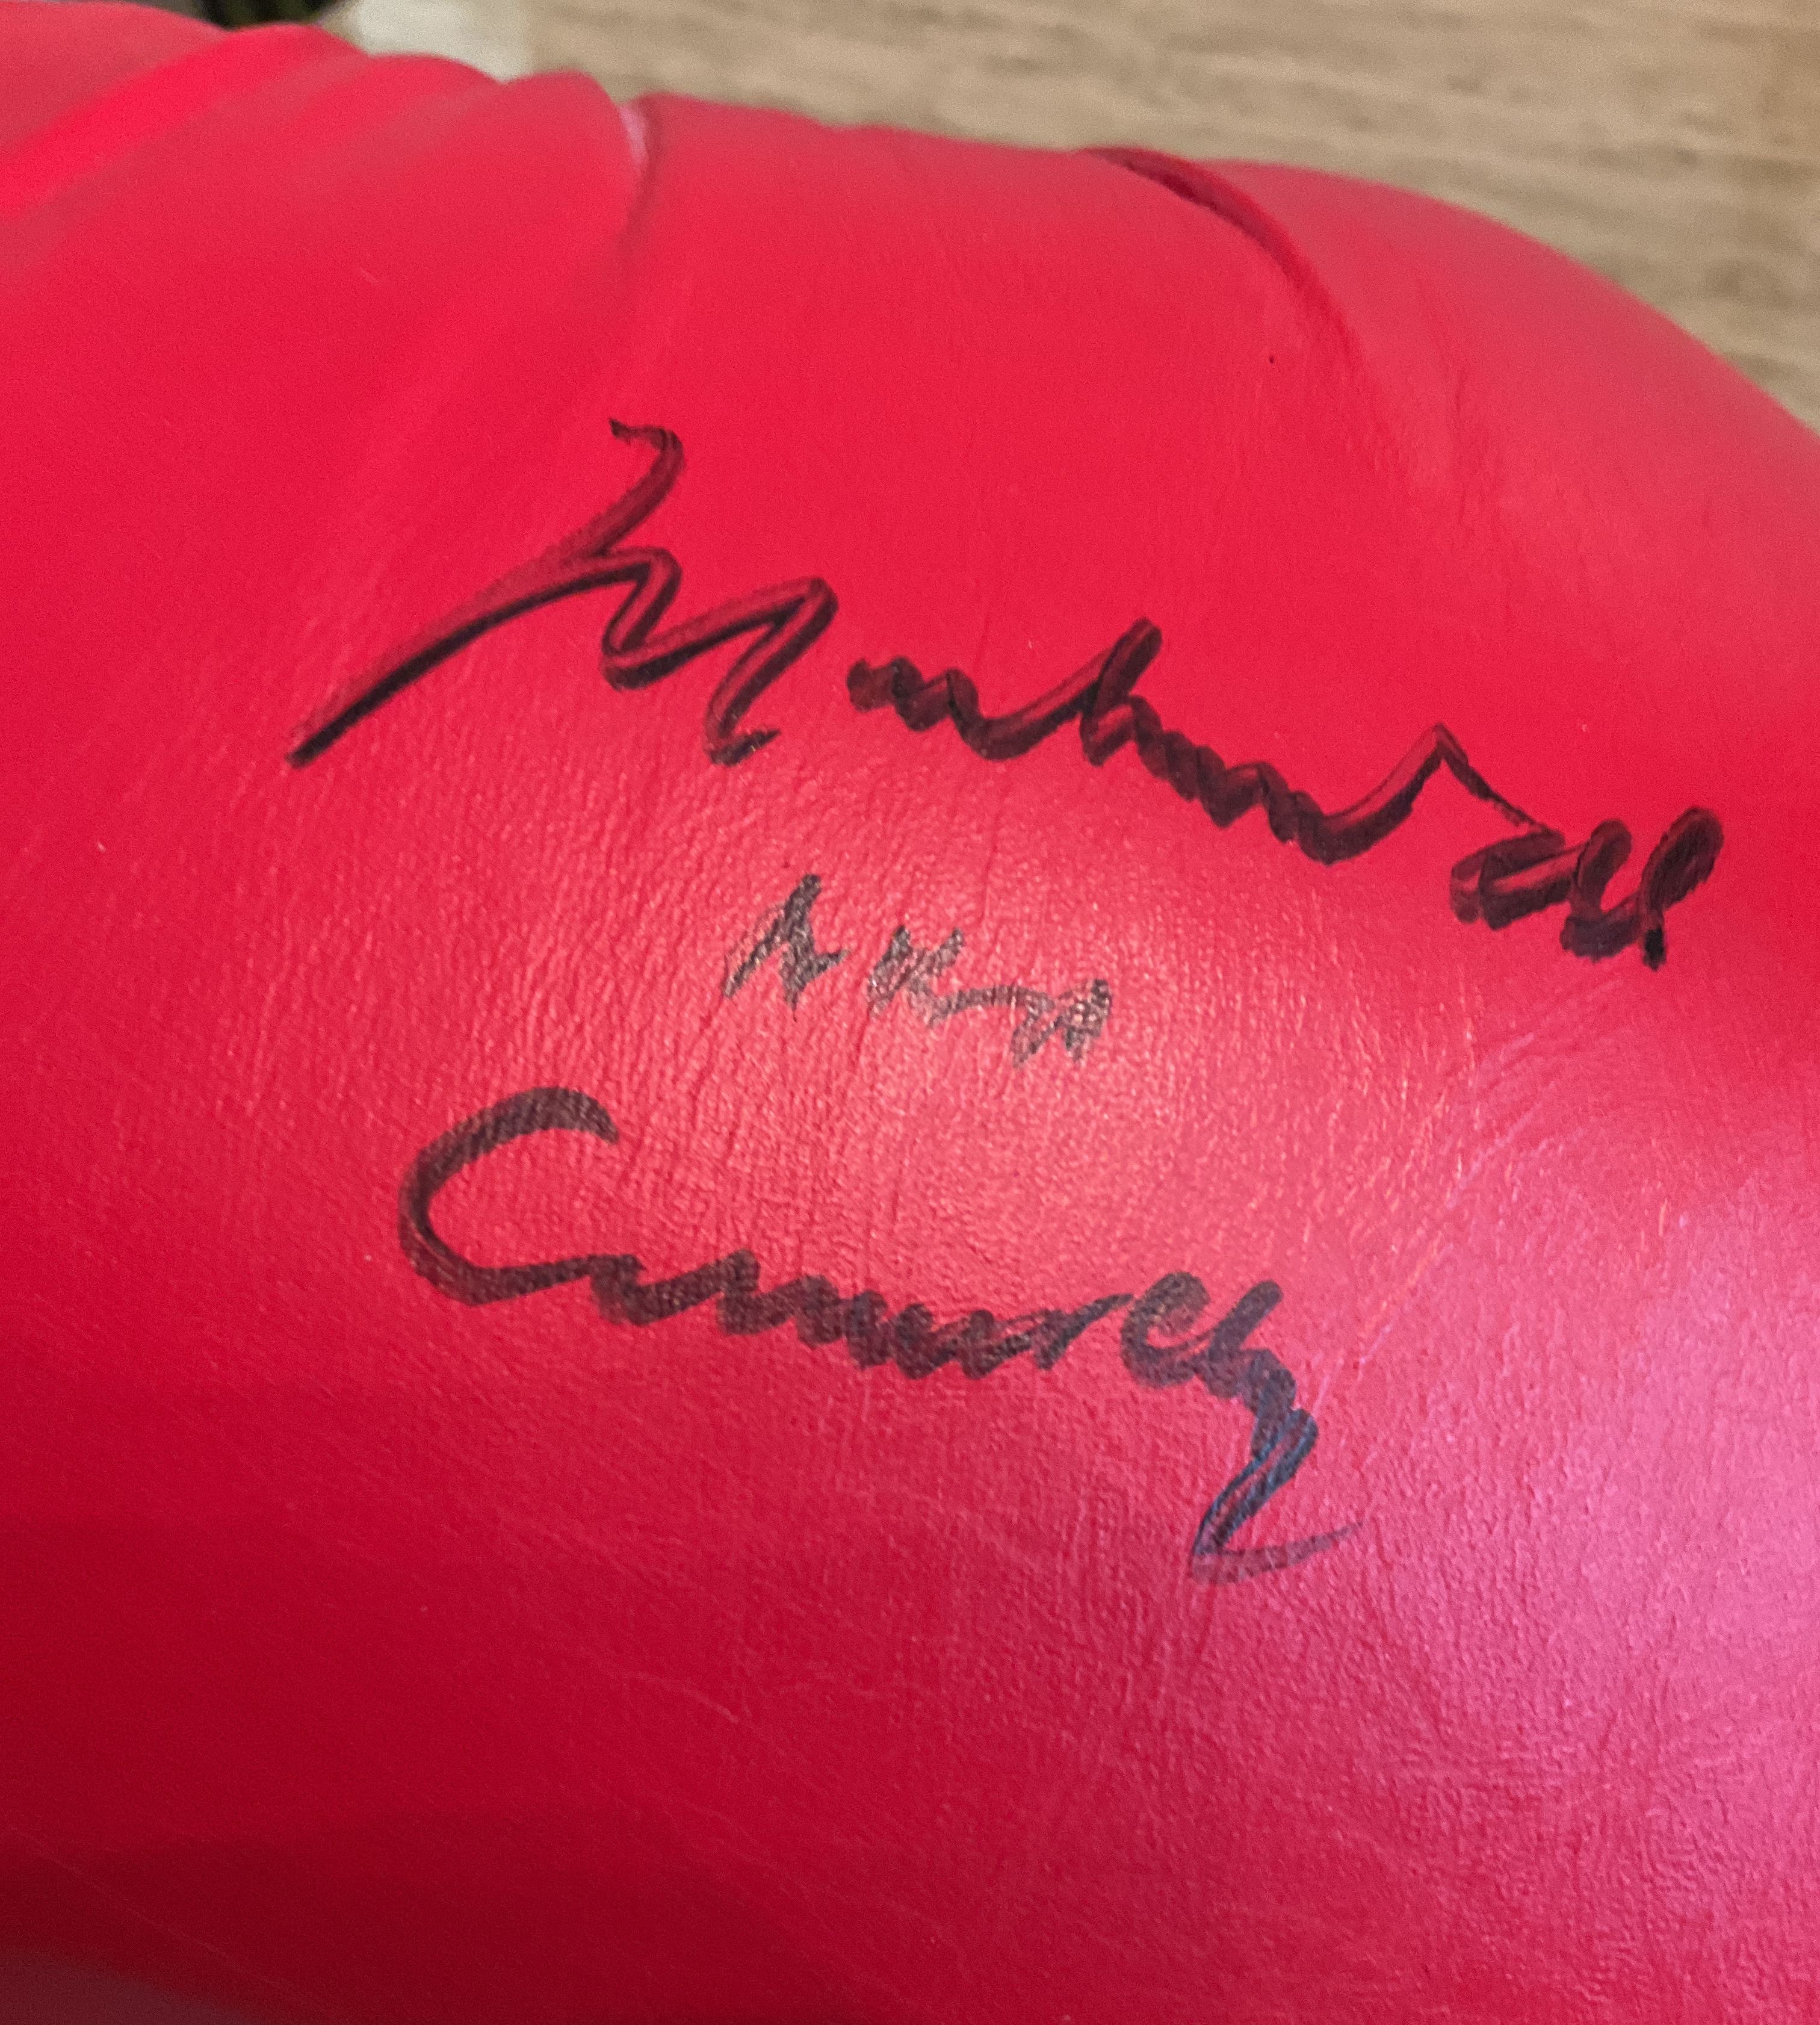 Muhammad Ali
AKA
Cassius Clay